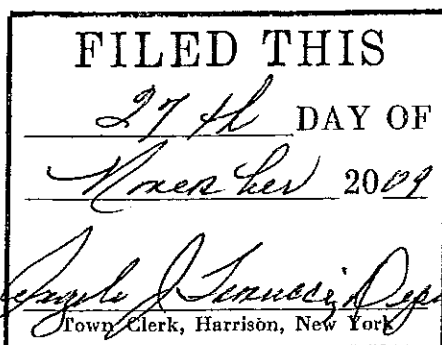 FILED THIS
27th DAY OF
November 2009
Angelo J
Town Clerk, Harrison, New York